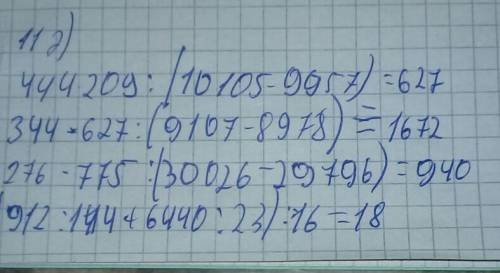 11 д)
444209:(10105-9957)=627
344·627:(9107-8978)=1672
276·775:(30026-29796)=940
912:144+6440:23):16=18